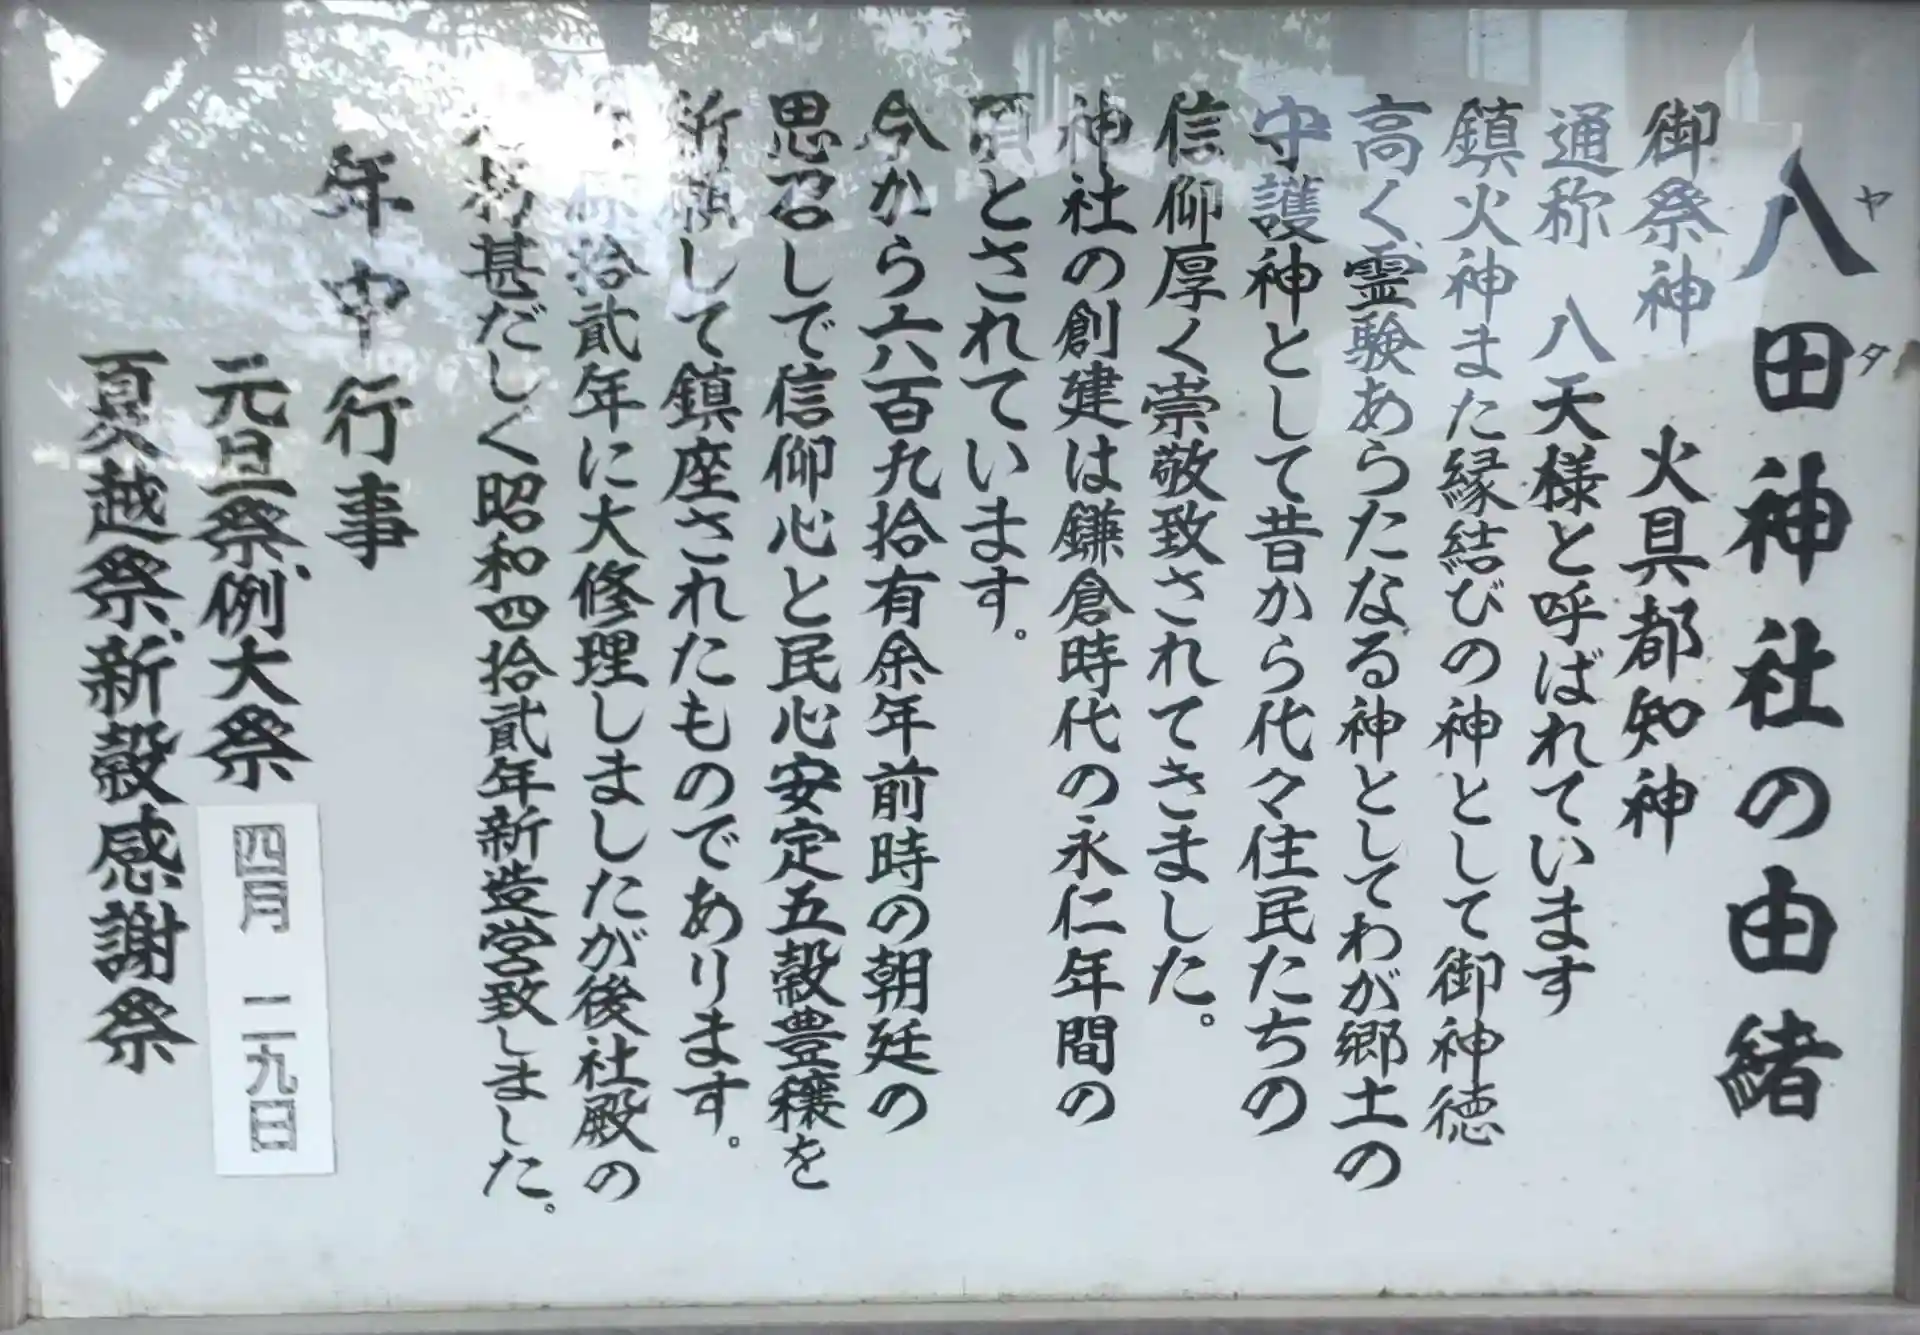 八田神社の由緒
ヤタ
御祭神　火具都知神
通称　八天様と呼ばれています
鎮火神また縁結びの神として御神徳
高く霊験あらたなる神としてわが郷土の
守護神として昔から代々住民たちの
信仰厚く崇敬致されてきました。
神社の創建は鎌倉時代の永仁年間の
頃とされています。
今から六百九拾有余年前時の朝廷の
思召しで信仰心と民心安定五穀豊穣を
祈願して鎮座されたものであります。
拾貳年に大修理しましたが後社殿の
甚だしく昭和四拾貳年新造営致しました。
年中行事
元旦祭、例大祭　四月　二九日
夏越祭、新穀感謝祭